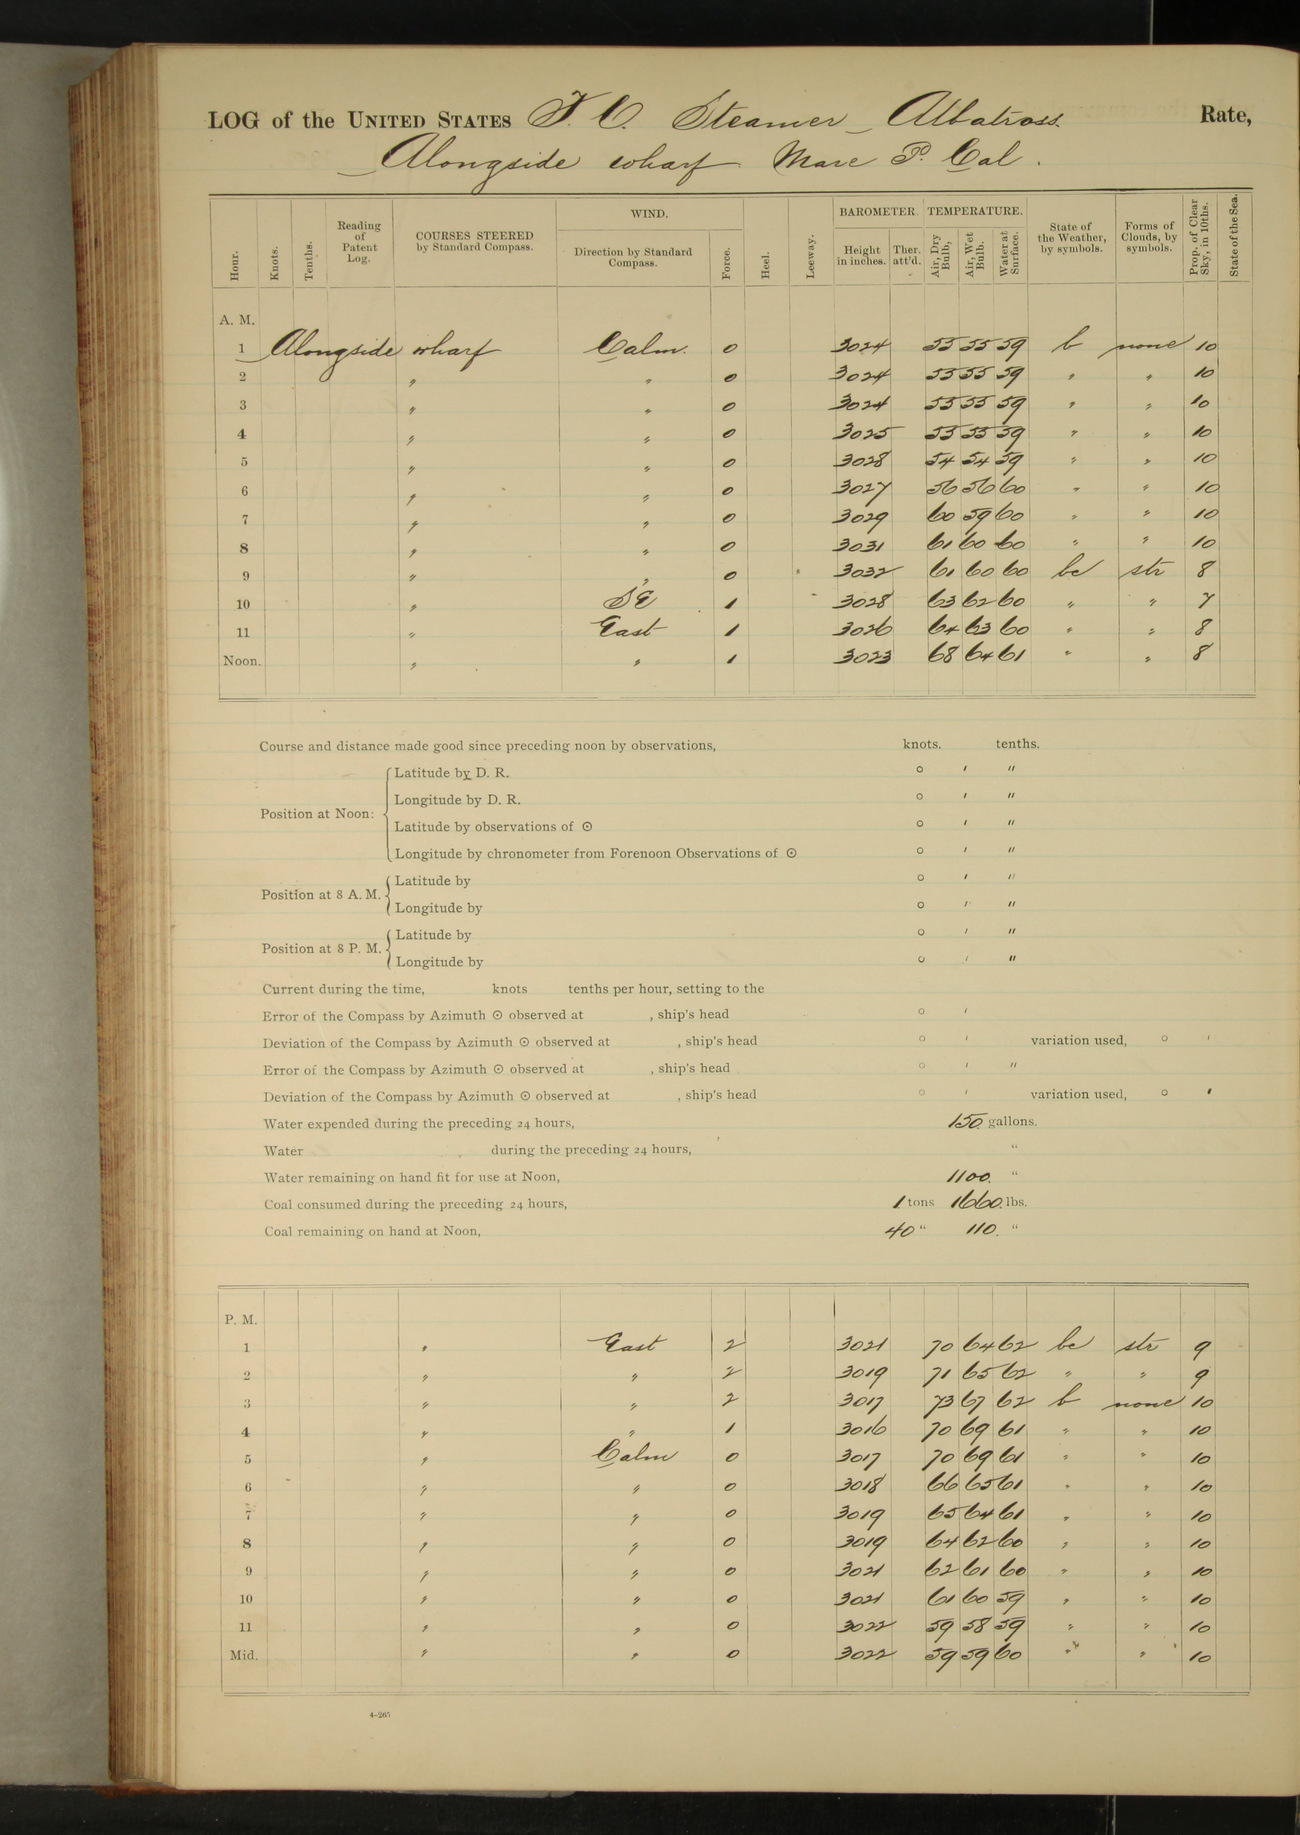 LOG of the UNITED STATES F. C. Steamer Albatross Rate,
Alongside wharf Mare Id. Cal.
Hour. Knots. Tenths. Reading of Patent Log. COURSES STEERED by Standard Compass. WIND. Direction by Standard Compass. Force. Heel. Leeway. BAROMETER. Height in inches. Ther. att'd. TEMPERATURE. Air, Dry Bulb, Air, Wet Bulb. Water at Surface. State of the Weather, by symbols. Forms of Clouds, by symbols. Prop. of Clear Sky, in 10ths. State of the Sea.
A. M.
1 Alongside wharf Calm. 0 3024 55 55 59 b none 10
2 " " 0 3024 55 55 59 " " 10
3 " " 0 3024 55 55 59 " " 10
4 " " 0 3025 55 55 59 " " 10
5 " " 0 3028 54 54 59 " " 10
6 " " 0 3027 56 56 60 " " 10
7 " " 0 3029 60 59 60 " " 10
8 " " 0 3031 61 60 60 " " 10
9 " " 0 3032 61 60 60 bc str 8
10 " SE 1 3028 63 62 60 " " 7
11 " East 1 3026 64 63 60 " " 8
Noon. " " 1 3023 68 64 61 " " 8
Course and distance made good since preceding noon by observations, knots. tenths.
Position at Noon: Latitude by D. R. ° ′ ″
Longitude by D. R. ° ′ ″
Latitude by observations of ☉ ° ′ ″
Longitude by chronometer from Forenoon Observations of ☉ ° ′ ″
Position at 8 A. M. Latitude by ° ′ ″
Longitude by ° ′ ″
Position at 8 P. M. Latitude by ° ′ ″
Longitude by ° ′ ″
Current during the time, knots tenths per hour, setting to the
Error of the Compass by Azimuth ☉ observed at , ship's head ° ′
Deviation of the Compass by Azimuth ☉ observed at , ship's head ° ′ variation used, ° ′
Error of the Compass by Azimuth ☉ observed at , ship's head ° ′ ″
Deviation of the Compass by Azimuth ☉ observed at , ship's head ° ′ variation used, ° ′
Water expended during the preceding 24 hours, 150 gallons.
Water during the preceding 24 hours, "
Water remaining on hand fit for use at Noon, 1100. "
Coal consumed during the preceding 24 hours, 1 tons 1660 lbs.
Coal remaining on hand at Noon, 40 " 110. "
P. M.
1 " East 2 3021 70 64 62 bc str 9
2 " " 2 3019 71 65 62 " " 9
3 " " 2 3017 73 67 62 b none 10
4 " " 1 3016 70 69 61 " " 10
5 " Calm 0 3017 70 69 61 " " 10
6 " " 0 3018 66 65 61 " " 10
7 " " 0 3019 65 64 61 " " 10
8 " " 0 3019 64 62 60 " " 10
9 " " 0 3021 62 61 60 " " 10
10 " " 0 3021 61 60 59 " " 10
11 " " 0 3022 59 58 59 " " 10
Mid. " " 0 3022 59 59 60 " " 10
4–265